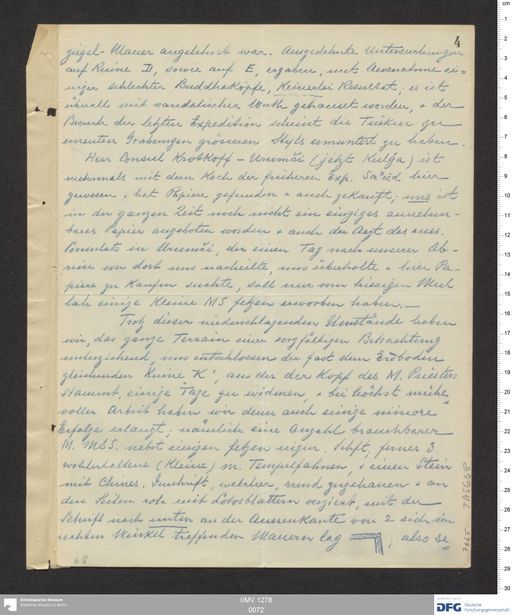 4
ziegel-Mauer angelehnt war. Ausgedehnte Untersuchungen
auf Ruine D, sowie auf E, ergaben, mit Ausnahme ei-
niger schlechter Buddhaköpfe, keinerlei Resultat; es ist
überall mit vandalischer Wuth gehaust worden, + der
Besuch der letzten Expedition scheint die Türken zu
erneuten Grabungen grösseren Styls ermuntert zu haben.
Herr Consul Krotkopf - Urumči (jetzt Kulga) ist
mehrmals mit dem Koch der früheren Exp. Sa'id hier
gewesen + hat Papiere gefunden + auch gekauft; uns ist
in der ganzen Zeit noch nicht ein einziges annehm-
bares Papier angeboten worden + auch der Agt des russ.
Consulats in Urumči, der einen Tag nach unserer Ab-
reise von dort uns nacheilte, uns überholte + hier Pa-
piere zu kaufen suchte, soll nur vom hiesigen Mul
lah einige kleine MS fetzen erworben haben. —
Trotz dieser niederschlagenden Umstände haben
wir, das ganze Terrain einer sorgfältigen Betrachtung
unterziehend, uns entschlossen der fast dem Erdboden
gleichenden Ruine "K", aus der der Kopf des M. Priesters
stammt, einige Tage zu widmen, + bei höchst mühe-
voller Arbeit haben wir denn auch einige minore
Erfolge erlangt; nämlich eine Anzahl brauchbarer
M. MSS. nebst einigen fetzen uigur. Schft, ferner 3
wohlerhaltene (kleine) m. Tempelfahnen, + einen Stein
mit Chines. Inschrift, welcher, rund zugehauen + an
den Seiten roh mit Lotosblättern verziert, mit der
Schrift nach unten an der Aussenkante von 2 sich im
rechten Winkel treffenden Mauern lag ; also se-
68
TA 5668
I/MV 1278
0072
Ethnologisches Museum
Staatliche Museen zu Berlin
DFG
Deutsche
Forschungsgemeinschaft